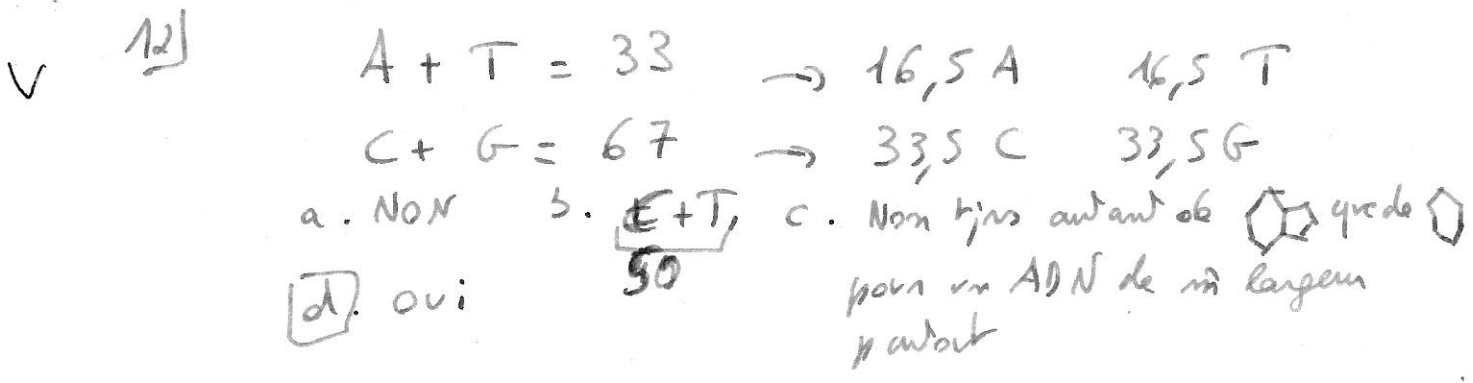 V 12) A + T = 33 → 16,5 A 16,5 T
C + G = 67 → 33,5 C 33,5 G
a. NON b. C+T, c. Non tjrs autant de que de
50
d. oui pour un ADN de m̂ largeur
partout